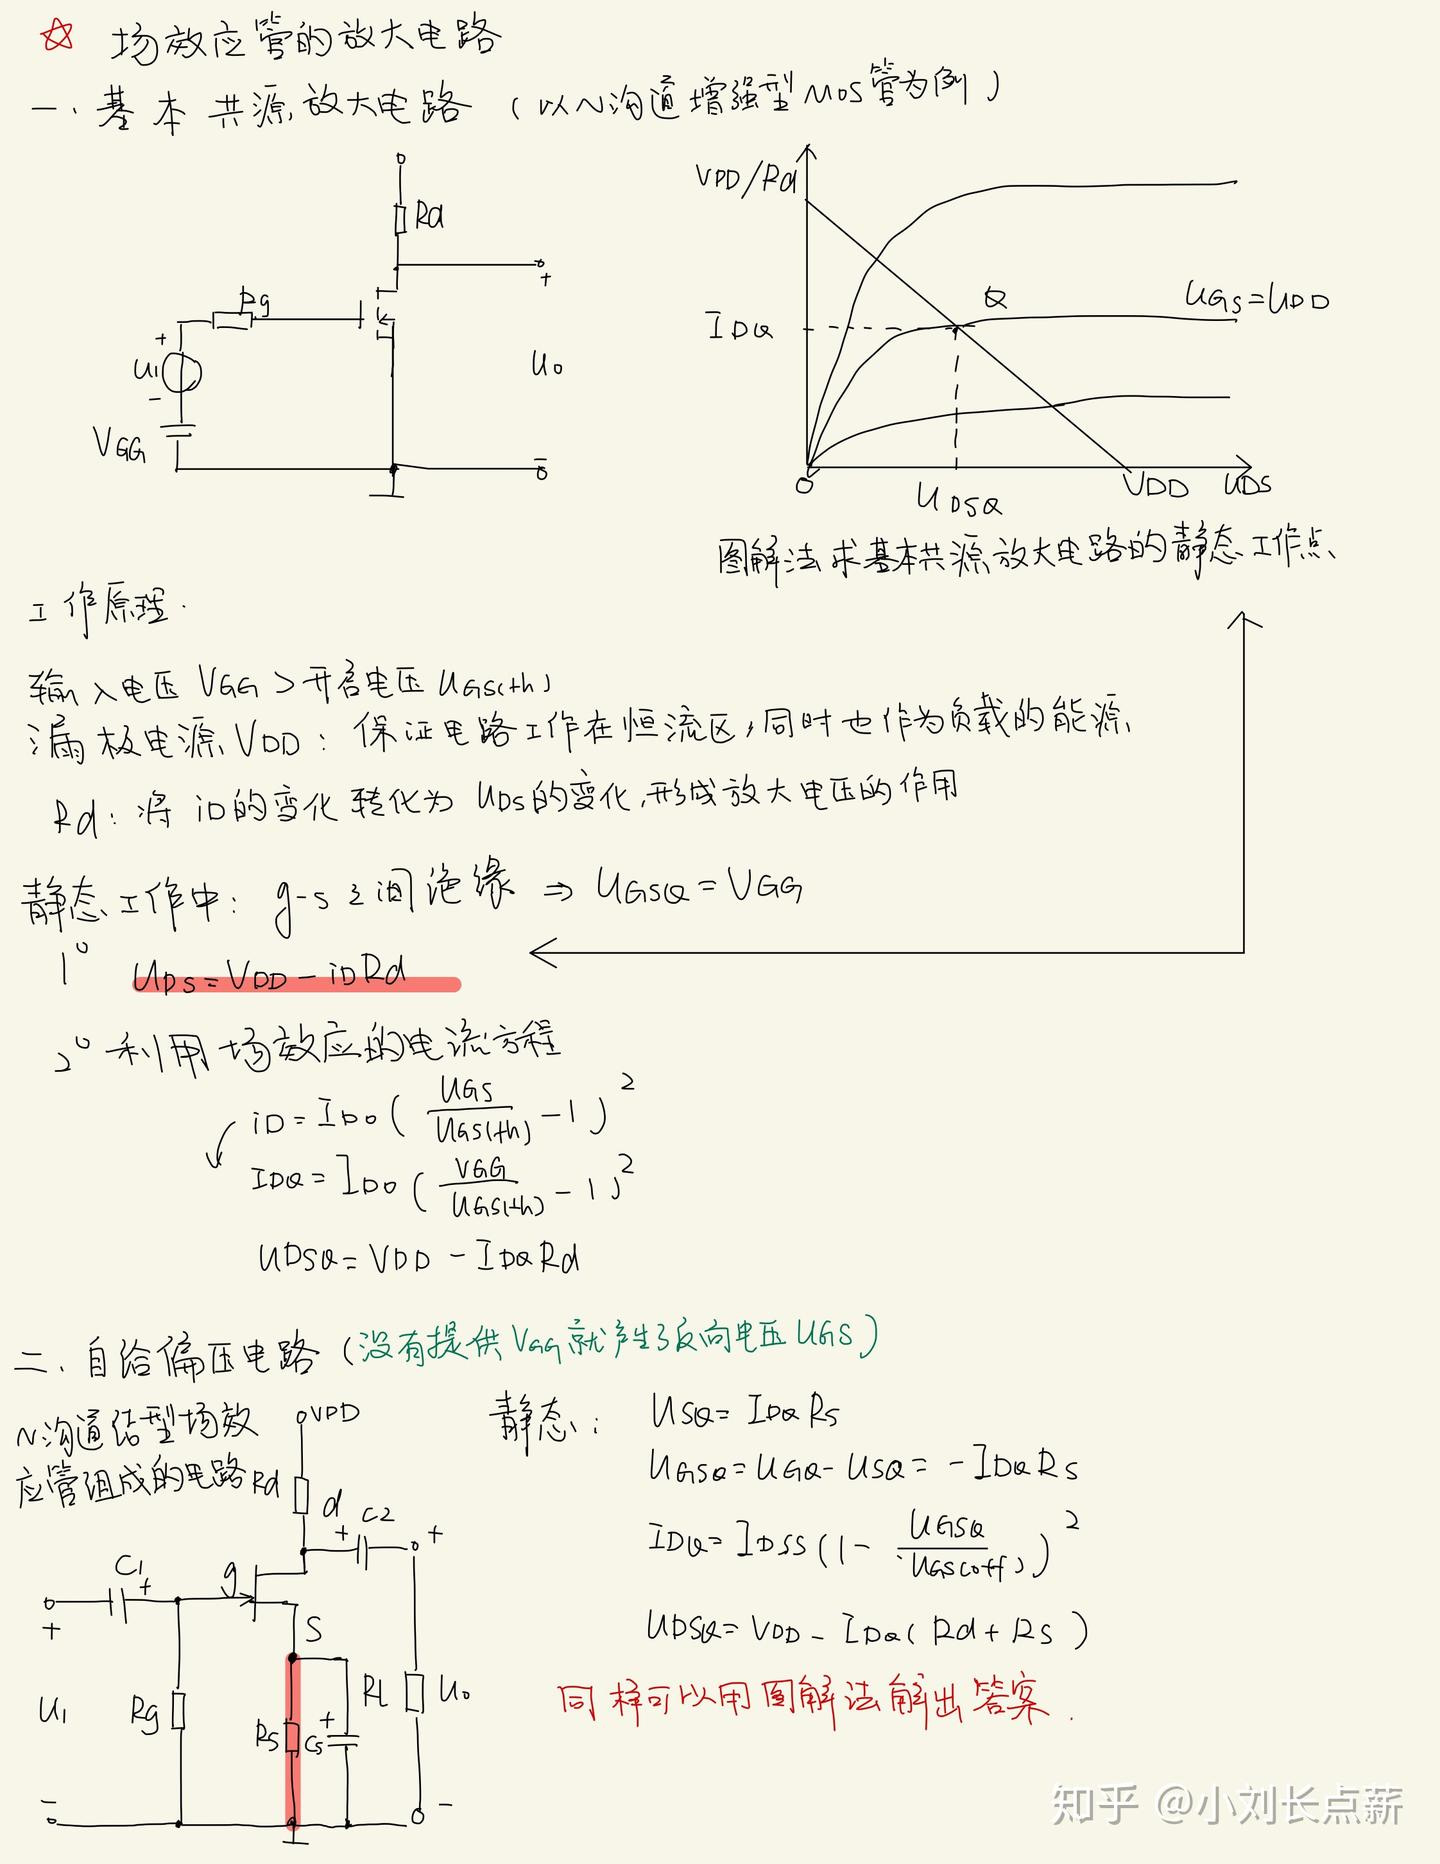 ☆ 场效应管的放大电路
一.基本共源放大电路（以N沟道增强型MOS管为例）
Rd
Rg
+
U1
-
VGG
+
Uo
-
VDD/Rd
IDQ
Q
UGS=UDD
O
UDSQ
VDD
UDS
图解法求基本共源放大电路的静态工作点
工作原理.
输入电压 VGG > 开启电压 UGS(th)
漏极电源 VDD: 保证电路工作在恒流区,同时也作为负载的能源.
Rd: 将 iD的变化转化为 UDS的变化,形成放大电压的作用
静态工作中: g-s之间绝缘 ⇒ UGSQ = VGG
1° UDS=VDD-iDRd
2° 利用场效应的电流方程
iD=IDO(UGS/UGS(th) -1)²
IDQ=IDO(VGG/UGS(th) -1)²
UDSQ=VDD-IDQRd
二.自给偏压电路（没有提供VGG就产生了反向电压UGS）
N沟道结型场效
应管组成的电路
VDD
Rd
d
+
C2
+
C1
+
g
S
+
U1
-
Rg
Rs
+
Cs
RL
Uo
-
静态:
USQ= IDQ Rs
UGSQ=UGQ-USQ=-IDQ Rs
IDQ=IDSS(1- UGSQ/UGS(off))²
UDSQ=VDD-IDQ(Rd+Rs)
同样可以用图解法解出答案.
知乎 @小刘长点薪